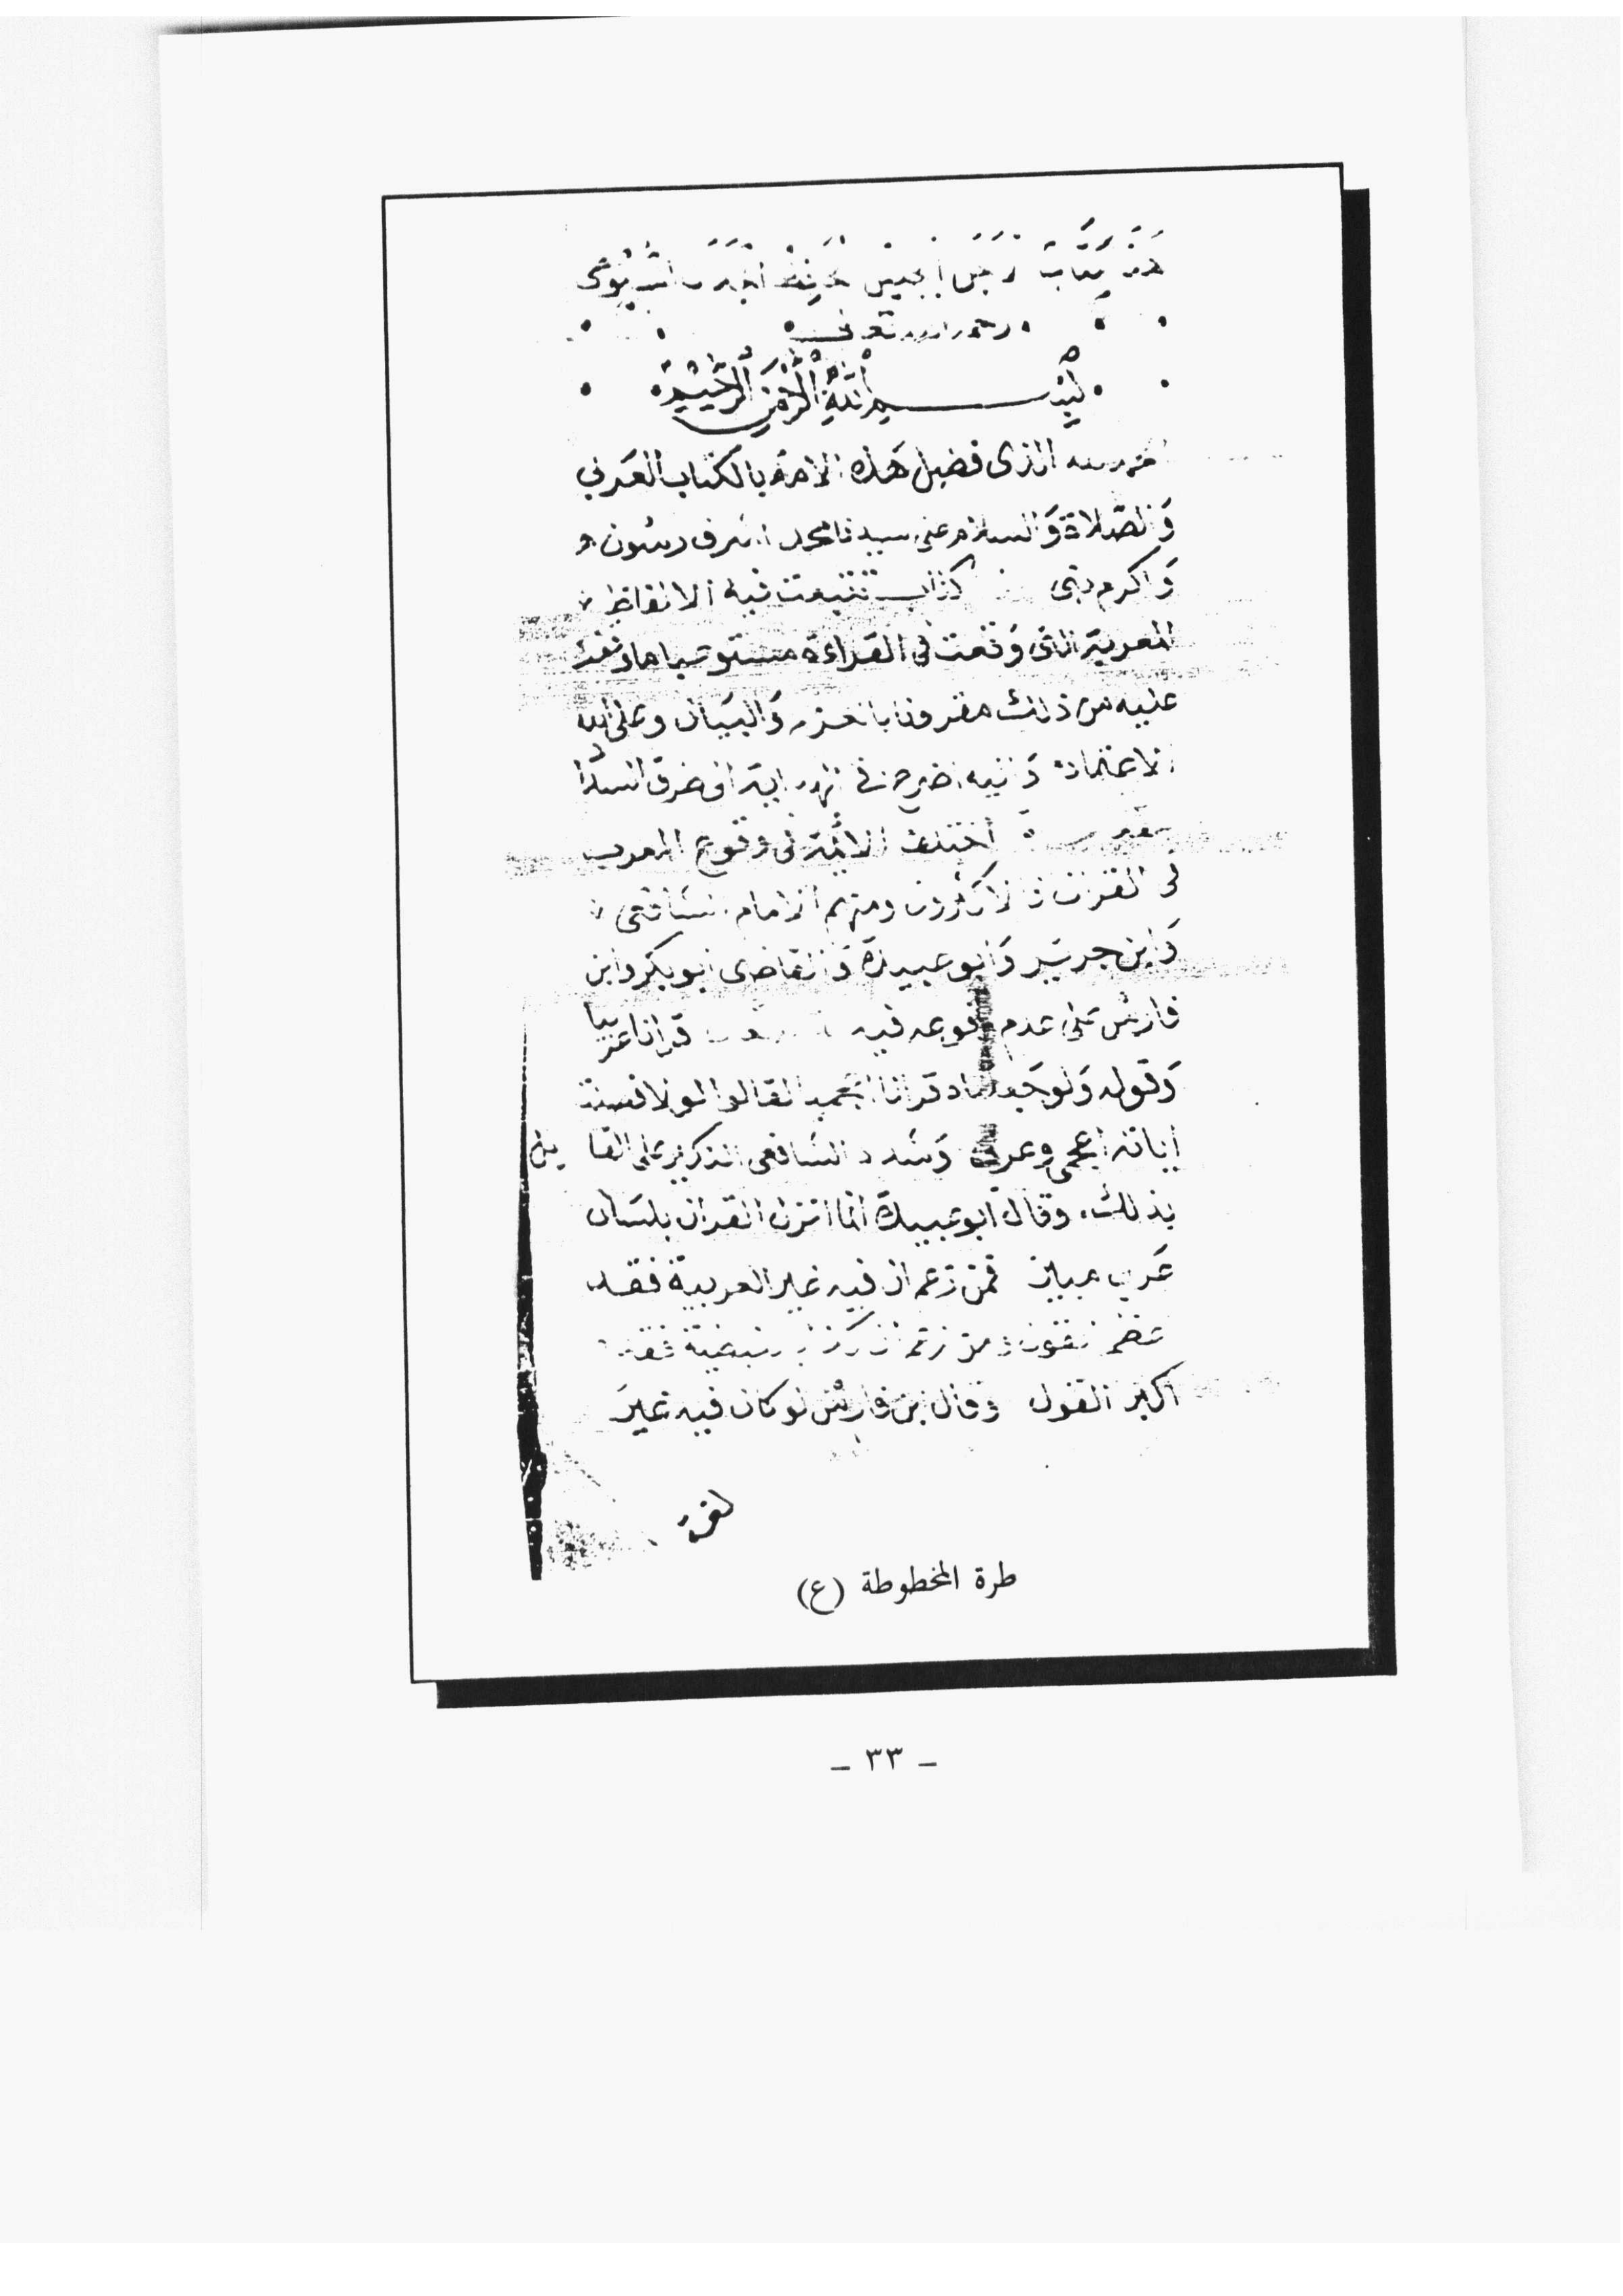 كتاب
رحمه الله تعالى
بسم الله الرحمن الرحيم
الذى فضل هذه الامة بالكتاب العربي
وَالصّلاة وَالسلام على سيدنا محمد اشرف رسول
وَاكرم نبى كتاب تتبعت فيه الالفاظ
المعربة التى وَقعت فى القراءة مستوعبا ما وقفت
عليه من ذلك مقرونا بالعزو وَالبيَان وعلى الله
الاعتماد وَاليه اضرع فى الهداية الى طرق السدا
اختلف الائمة فى وقوع المعرب
فى القران فالاكثرون ومنهم الامام الشافعى
وَابن جرير وَابو عبيدة وَالقاضى ابو بكر وابن
فارس على عدم وقوعه فيه قرانا عربيا
وَقوله وَلو جعلناه قرانا اعجميا لقالوا لولا فصلت
اياته اعجمى وعربى وَشدد الشافعى النكير على القا يل
بذلك، وقال ابو عبيدة انما انزل القران بلسَان
عَربى مبين فمن زعم ان فيه غير العربية فقد
اكبر القول وقال ابن فارس لو كان فيه غير
طرة المخطوطة (ع)
– ٣٣ –